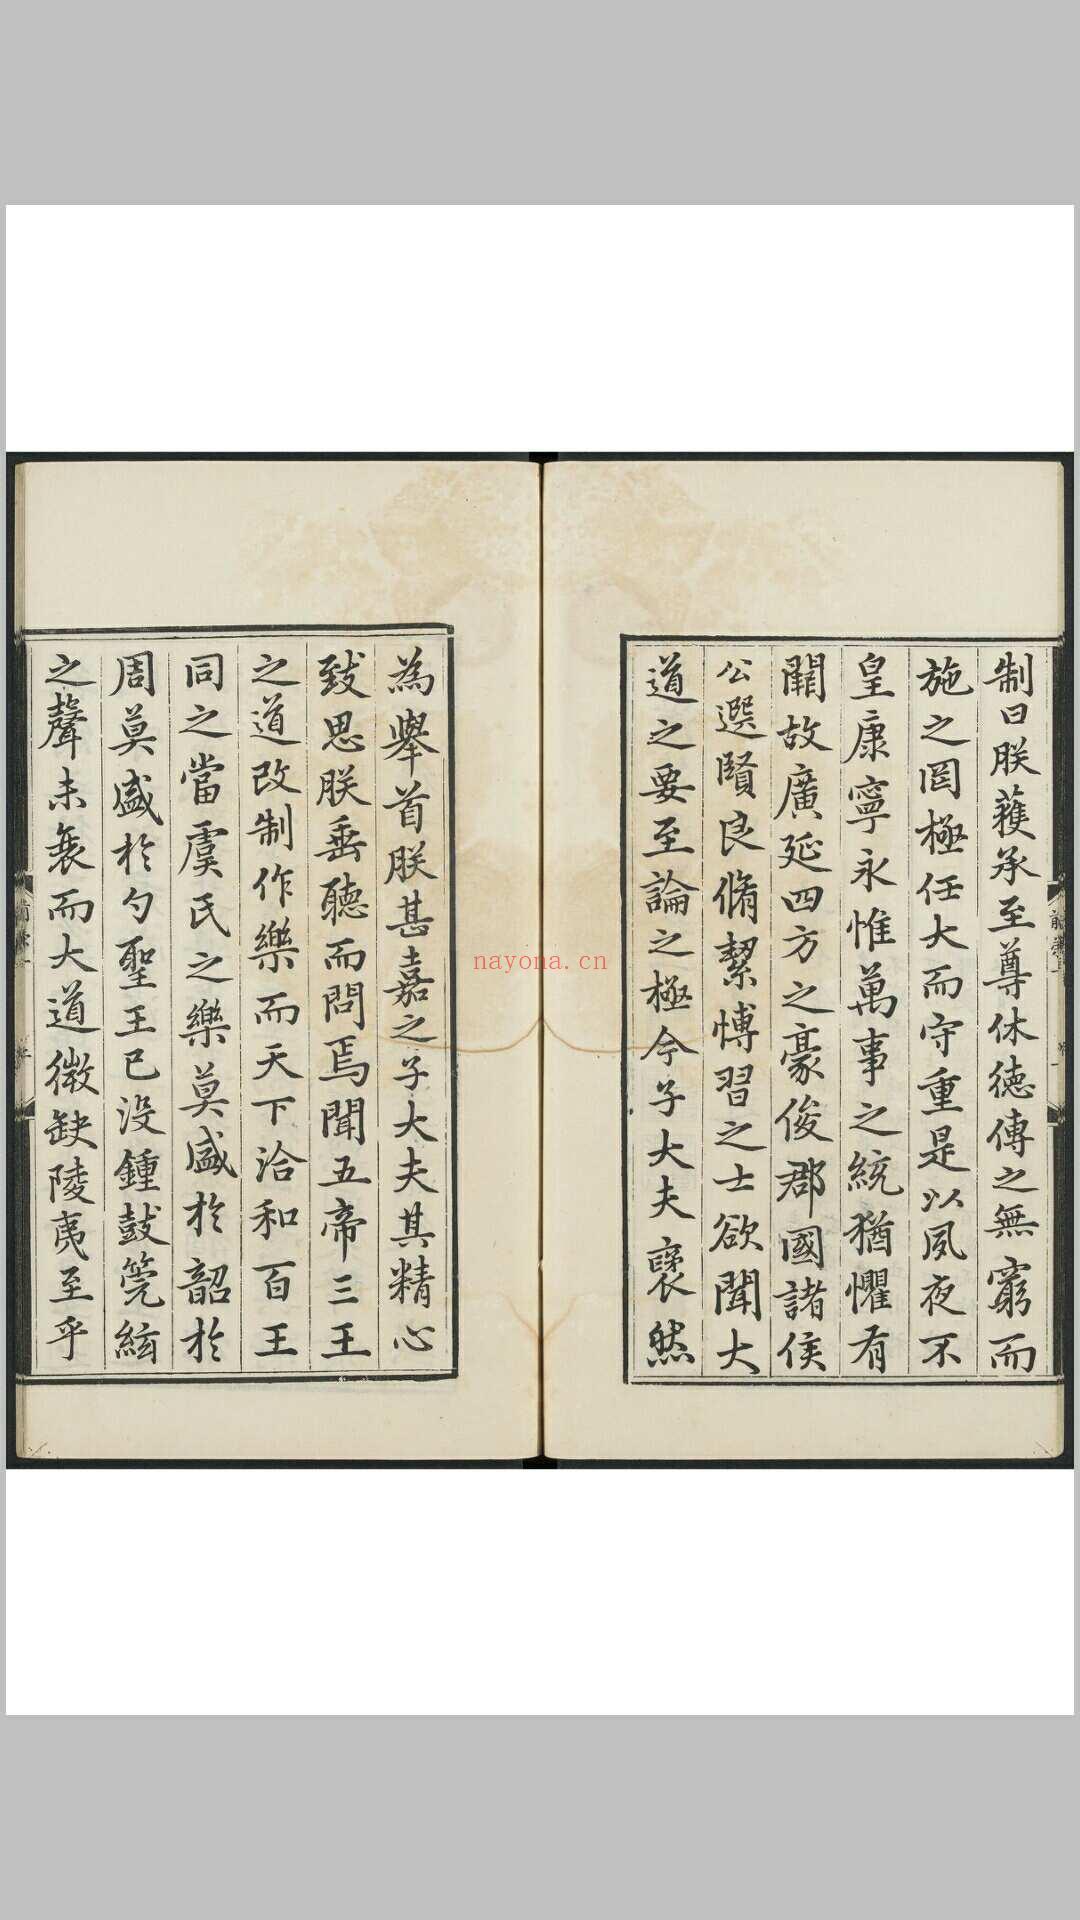 制曰朕獲承至尊休德傳之無窮而
施之罔極任大而守重是以夙夜不
皇康寧永惟萬事之統猶懼有
闕故廣延四方之豪俊郡國諸侯
公選賢良脩絜博習之士欲聞大
道之要至論之極今子大夫褎然
為舉首朕甚嘉之子大夫其精心
致思朕垂聽而問焉聞五帝三王
之道改制作樂而天下洽和百王
同之當虞氏之樂莫盛於韶於
周莫盛於勺聖王已沒鍾鼓筦絃
之聲未衰而大道微缺陵夷至乎
nayona.cn